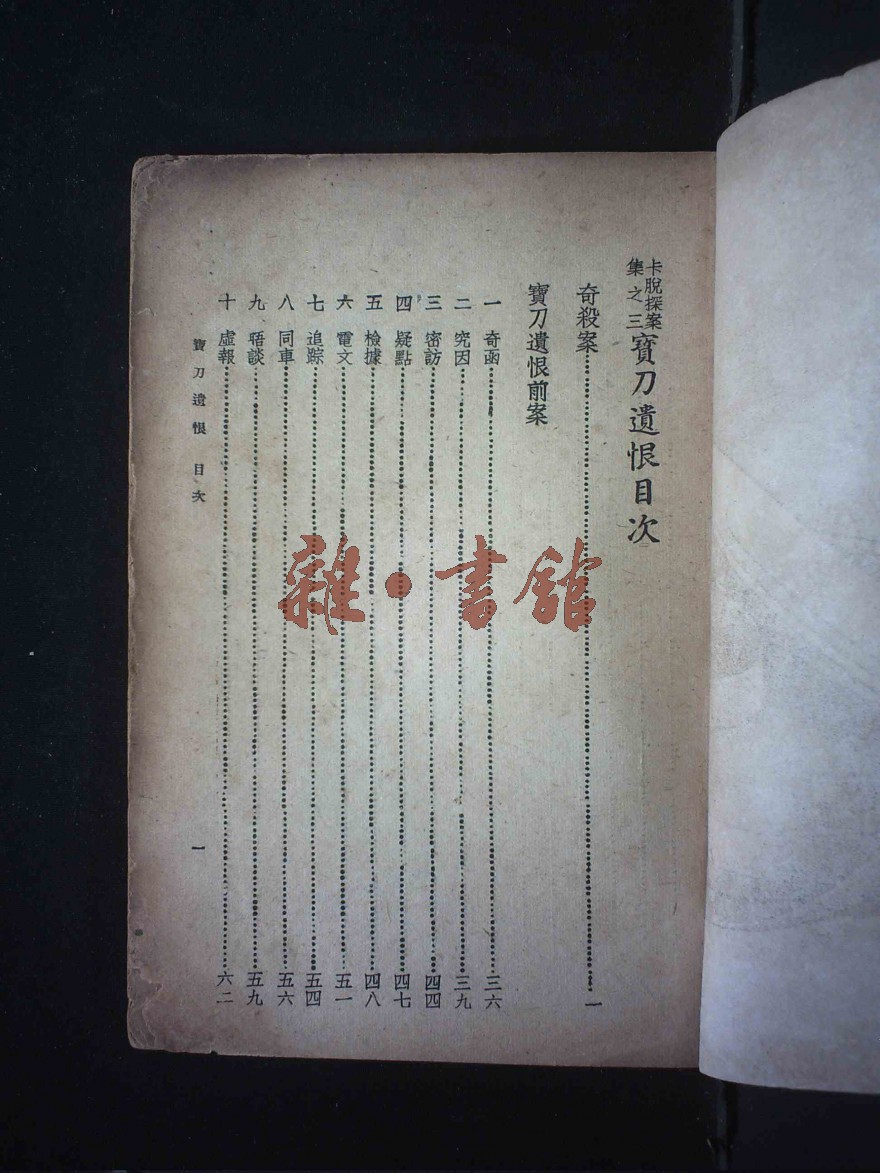 卡脫探案
集之三
寶刀遺恨目次
奇殺案一
寶刀遺恨前案
一 奇函三六
二 究因三九
三 密訪四四
四 疑點四七
五 檢據四八
六 電文五一
七 追踪五四
八 同車五六
九 晤談五九
十 虛報六二
寶刀遺恨 目次
一
雜·書館